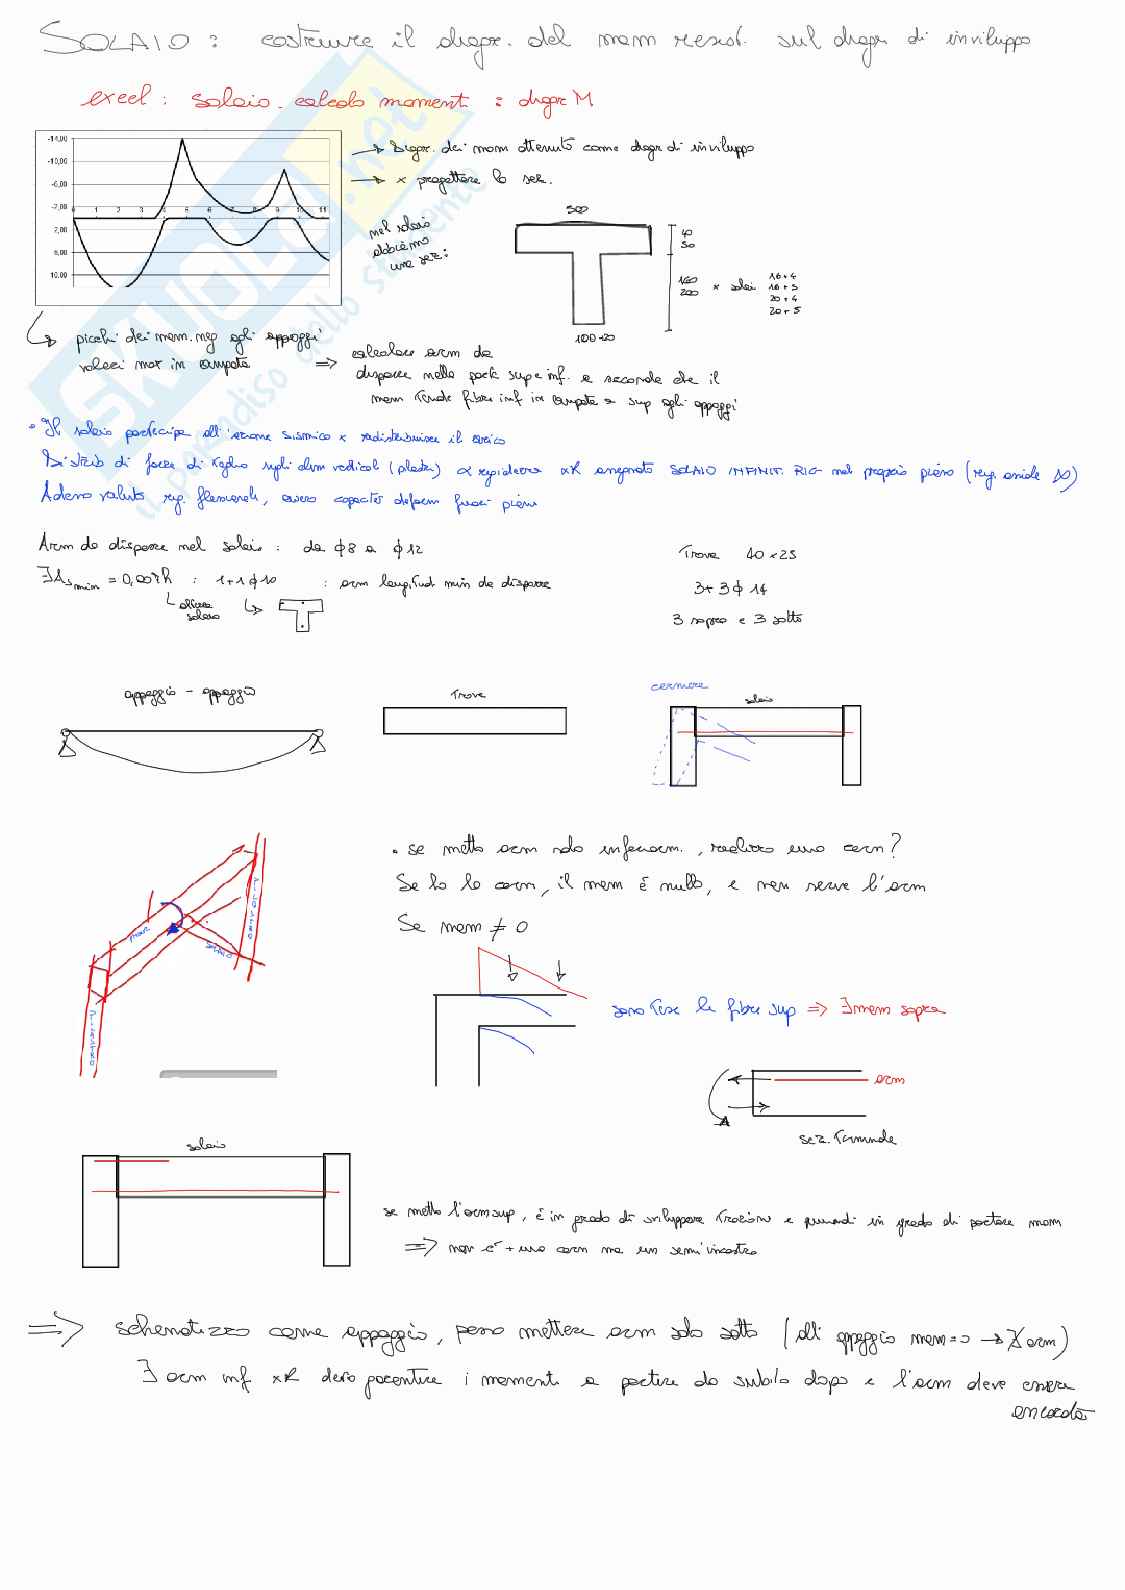 SOLAIO : costruire il diagr. del mom resist. sul diagr di inviluppo
excel : solaio - calcolo momenti : diagr M
-14,00
-10,00
-6,00
-2,00
0 1 2 3 4 5 6 7 8 9 10 11
2,00
6,00
10,00
→ Diagr. dei mom ottenuto come diagr di inviluppo
→ x progettare la sez.
nel solaio
abbiamo
una sez :
500
40
50
160
200
x solai
16 + 4
16 + 5
20 + 4
20 + 5
100 - 120
picchi dei mom. neg agli appoggi
valori max in campata
⇒ calcolare arm da
disporre nella parte sup e inf. a seconda che il
mom tende fibre inf in campata e sup agli appoggi
• Il solaio partecipa all'azione sismica x redistribuire il carico
Distrib di forze di taglio sugli elem verticali (pilastri) ∝ rigidezza xk assegnato SOLAIO INFINIT. RIG. nel proprio piano (rig. assiale ∞)
Adesso valuto rig. flessionale, ovvero capacità deform fuori piano
Arm da disporre nel solaio : da ϕ8 a ϕ12
∃ As min = 0,007 h : 1+1 ϕ 10 : arm longitud min da disporre
altezza
solaio
Trave 40 x 25
3 + 3 ϕ 14
3 sopra e 3 sotto
appoggio - appoggio
trave
cerniera
solaio
TRAVE
SOLAIO
PILASTRO
PILASTRO
• se metto arm solo inferiorm. , realizzo una cern?
Se ho la cern, il mom è nullo, e non serve l'arm
Se mom ≠ 0
sono tese le fibre sup ⇒ ∃ mom sopra
arm
sez. terminale
solaio
se metto l'arm sup, è in grado di sviluppare trazione e quindi in grado di portare mom
⇒ non c'è + una cern ma un semincastro
⇒ schematizzo come appoggio, posso mettere arm solo sotto (all' appoggio mom = 0 → ∄ arm)
∃ arm inf xk devo garantire i momenti a partire da subito dopo e l'arm deve essere
ancorata
SKUOLA.net
il paradiso dello studente